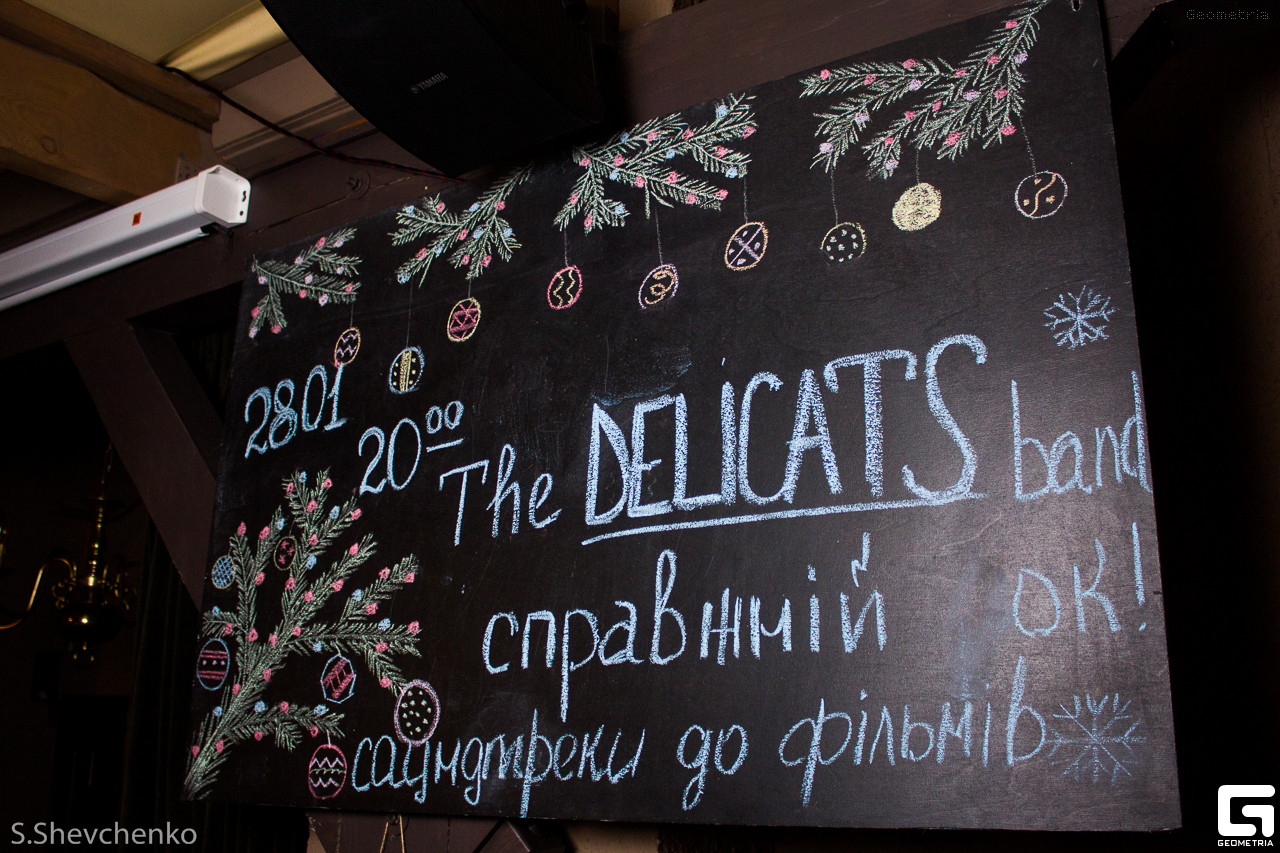 Geometria
YAMAHA
2801
20⁰⁰
The DELiCATS band
справжній ок!
саундтреки до фільмів
S.Shevchenko
GEOMETRIA